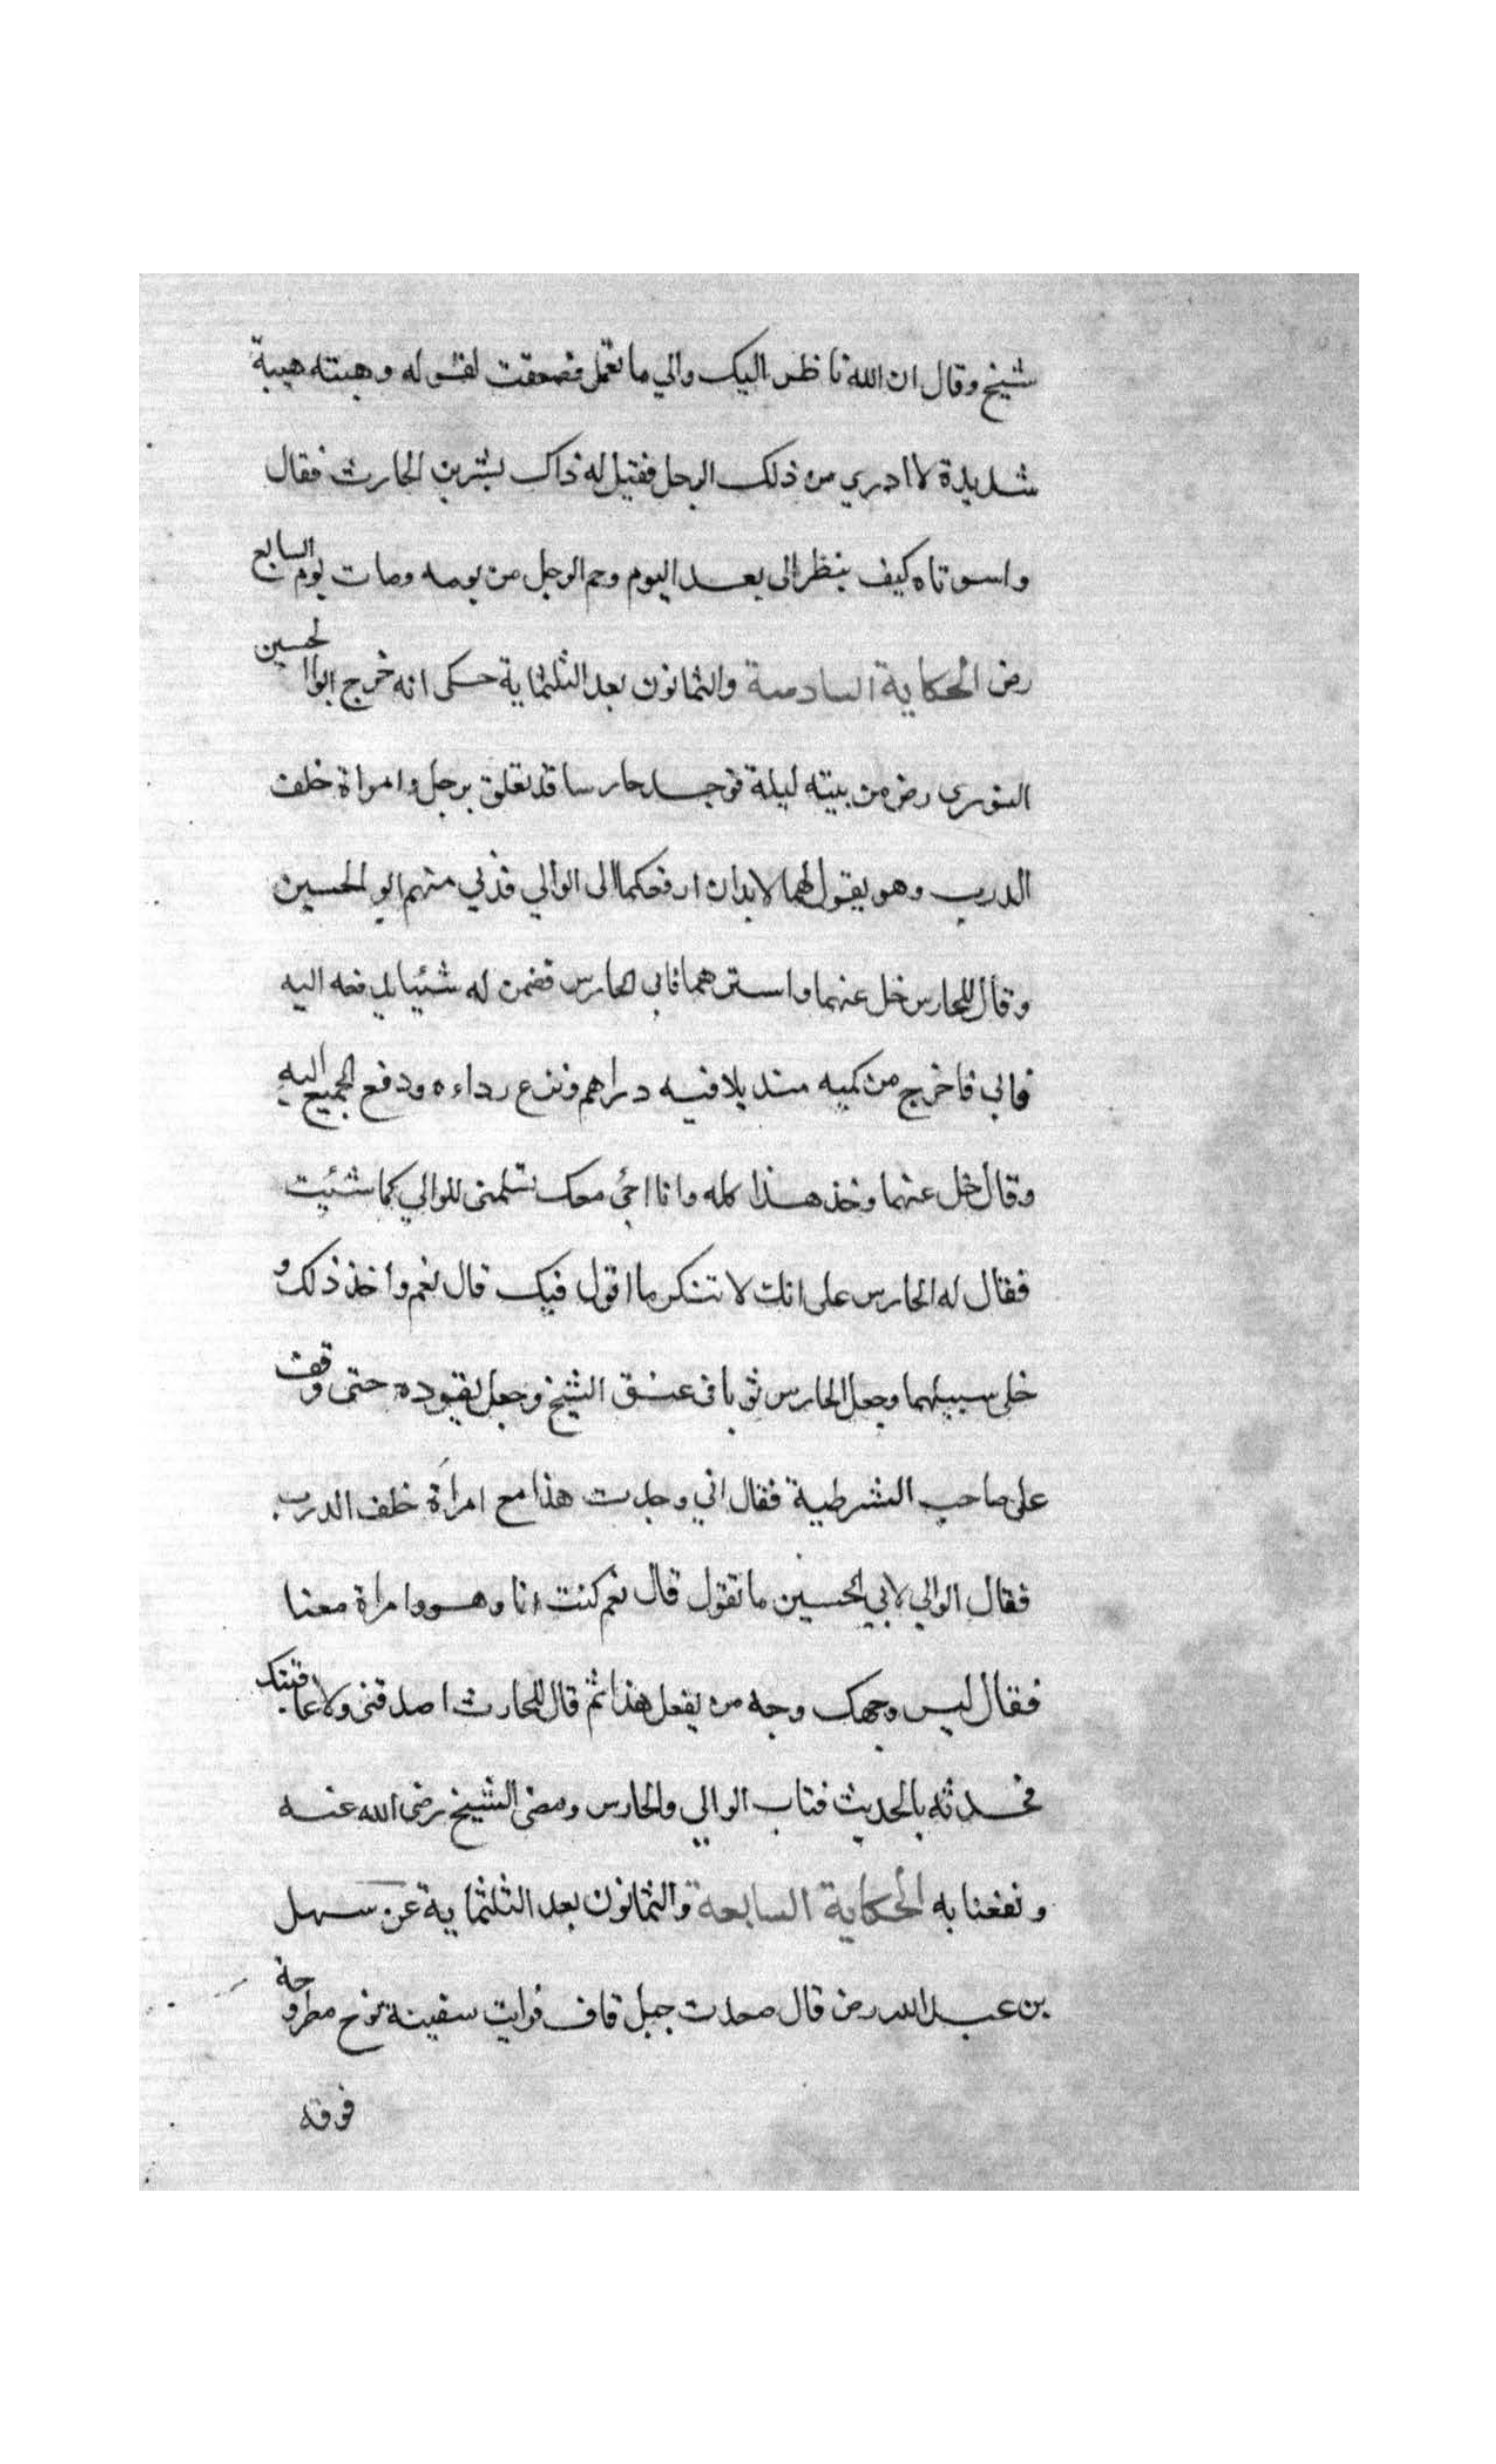 شيخ وقال ان الله ناظر اليك والي ما تعمل فصعقت لقوله وهبته هيبة
شديدة لا ادري من ذلك الرجل فقيل له ذاك بشر بن الحارث فقال
واسوتاه كيف ينظر الى بعد اليوم وحم الرجل من يومه ومات يوم السابع
رض الحكاية السادسة والثمانون بعد الثلثماية حكى انه خرج ابوالحسين
النوري رض من بيته ليلة فوجد حارسا قد تعلق برجل وامراة خلف
الدرب وهو يقول لهما لابد ان ارفعكما الى الوالي فدني منهم ابو الحسين
وقال للحارس خل عنهما واسترهما فابى الحارس فضمن له شئيا يدفعه اليه
فابي فاخرج من كميه منديلا فيه دراهم ونزع رداءه ودفع الجميع اليه
وقال خل عنهما وخذ هذا كله وانا اجئ معك تسلمني للوالي كما شئيت
فقال له الحارس على انك لا تنكر ما اقول فيك قال نعم واخذ ذلك و
خلى سبيلهما وجعل الحارس ثوبا في عنق الشيخ وجعل يقوده حتى وقف
على صاحب الشرطية فقال اني وجدت هذا مع امراة خلف الدرب
فقال الوالي لابي الحسين ما تقول قال نعم كنت انا وهو وامراة معنا
فقال ليس وجهك وجه من يفعل هذا ثم قال للحارث اصدقني ولا عاقبتك
فحدثه بالحديث فتاب الوالي والحارس ومضى الشيخ رضى الله عنه
ونفعنا به الحكاية السابعة والثمانون بعد الثلثماية عن سهل
بن عبد الله رض قال صعدت جبل قاف فرايت سفينة نوح مطروحة
فوقه